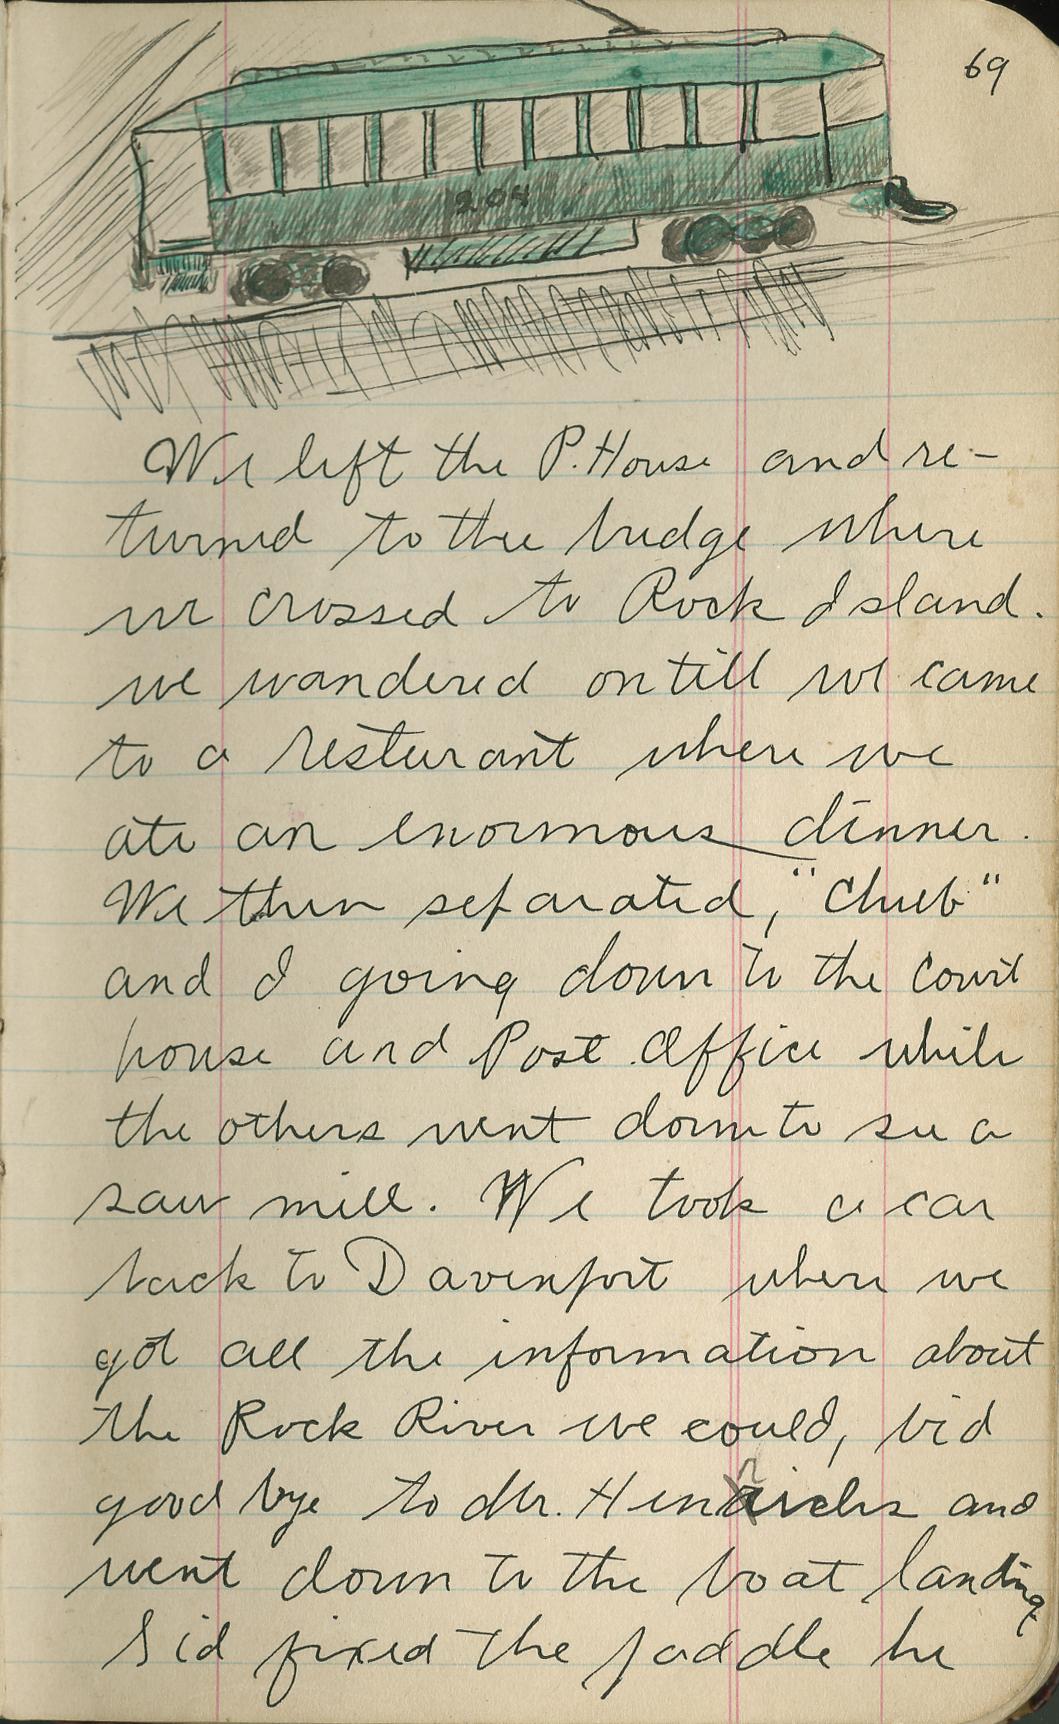 69
204
We left the P. House and re-
turned to the bridge where
we crossed to Rock Island.
we wandered on till we came
to a resturant where we
ate an enormous dinner.
We then separated, "Chub"
and I going down to the court
house and Post Office while
the others went down to see a
saw mill. We took a car
back to Davenport where we
got all the information about
the Rock River we could, bid
good bye to Mr. Hinrichs and
went down to the boat landing
Sid fixed the paddle he